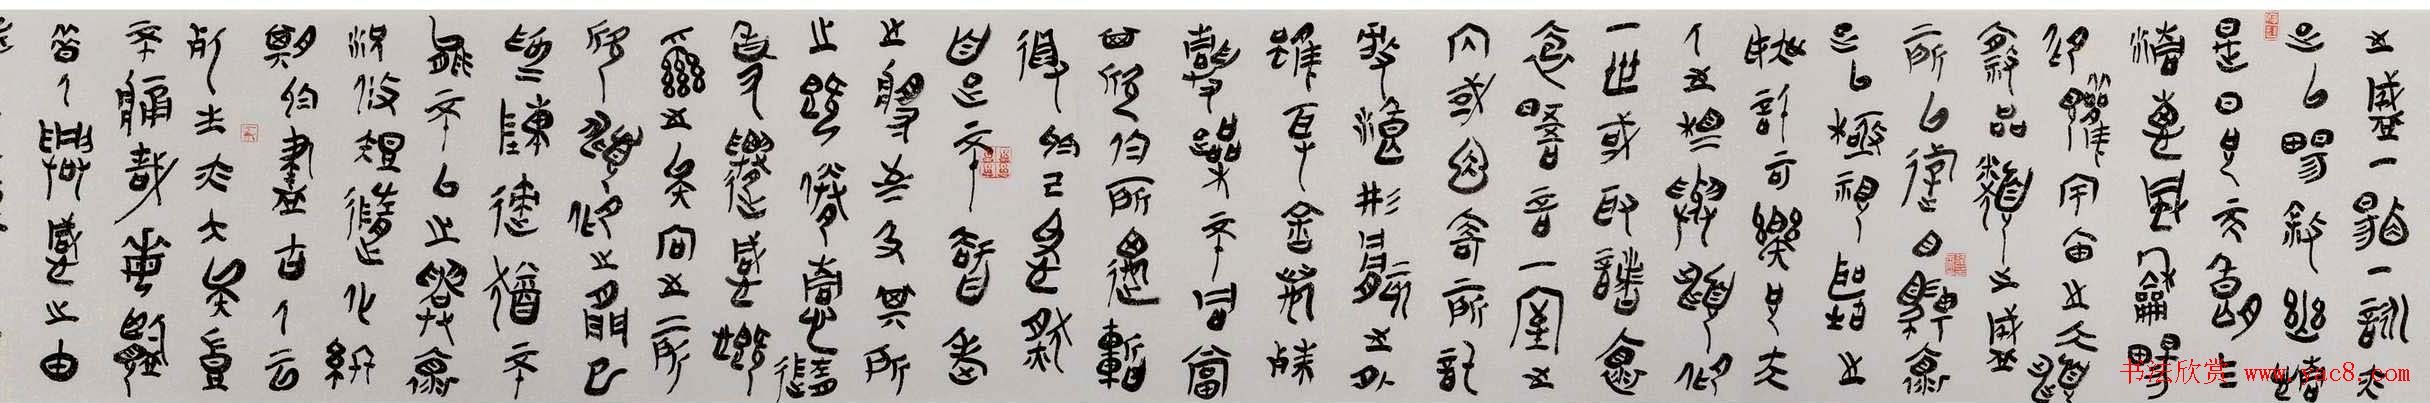 之盛一觴一詠亦
足以暢敘幽情
是日也天朗气
清惠風和暢
仰觀宇宙之大俯
察品類之盛
所以遊目騁懷
足以極視聽之
娛信可樂也夫
人之相與俯仰
一世或取諸懷
抱悟言一室之
內或因寄所託
放浪形骸之外
雖趣舍萬殊
靜躁不同當
其欣於所遇暫
得於己快然
自足不知老
之將至及其所
之既倦情隨
事遷感慨
係之矣向之所
欣俯仰之間已
為陳迹猶不
能不以之興懷
況修短隨化終
期於盡古人云
死生亦大矣豈
不痛哉每覽
昔人興感之由
书法欣赏 www.yac8.com